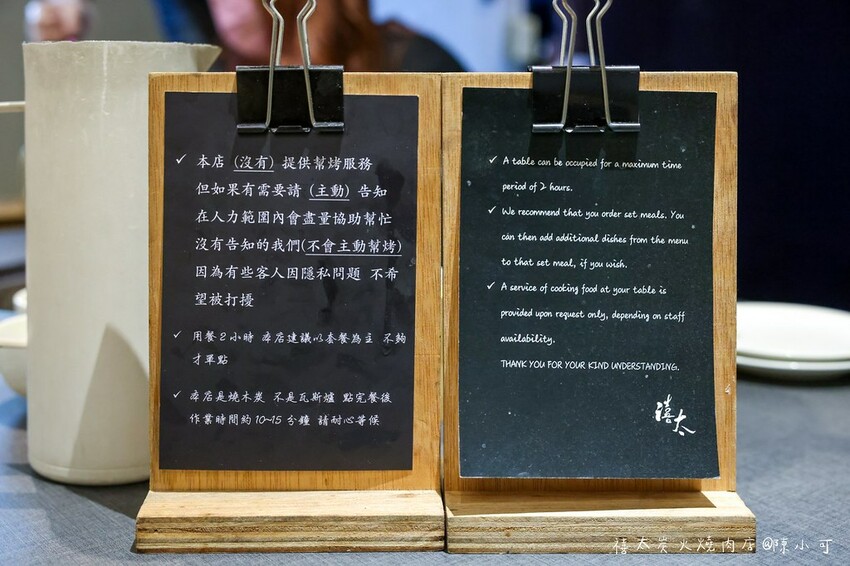 ✓ 本店 (沒有) 提供幫烤服務
但如果有需要請 (主動) 告知
在人力範圍內會盡量協助幫忙
沒有告知的我們(不會主動幫烤)
因為有些客人因隱私問題 不希
望被打擾
✓ 用餐2小時 本店建議以套餐為主 不夠
才單點
✓ 本店是燒木炭 不是瓦斯爐 點完餐後
作業時間約10~15分鐘 請耐心等候
✓ A table can be occupied for a maximum time
period of 2 hours.
✓ We recommend that you order set meals. You
can then add additional dishes from the menu
to that set meal, if you wish.
✓ A service of cooking food at your table is
provided upon request only, depending on staff
availability.
THANK YOU FOR YOUR KIND UNDERSTANDING.
禧太
禧太炭火燒肉店@陳小可